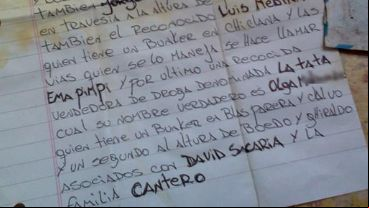 también
en travesía a la altura de
también el reconocido Luis Medina
quien tiene un Bunker en Chiclana y las
vias quien se lo maneja se hace llamar
Ema Pimpi y por ultimo una recocida
vendedora de droga denominada La Tata
cual su nombre verdadero es Olga
quien tiene un Bunker en Blas Parera y Calvo
y un segundo al altura de Boedo y Ghiraldo
asociados con David Sacaria y la
Familia Cantero